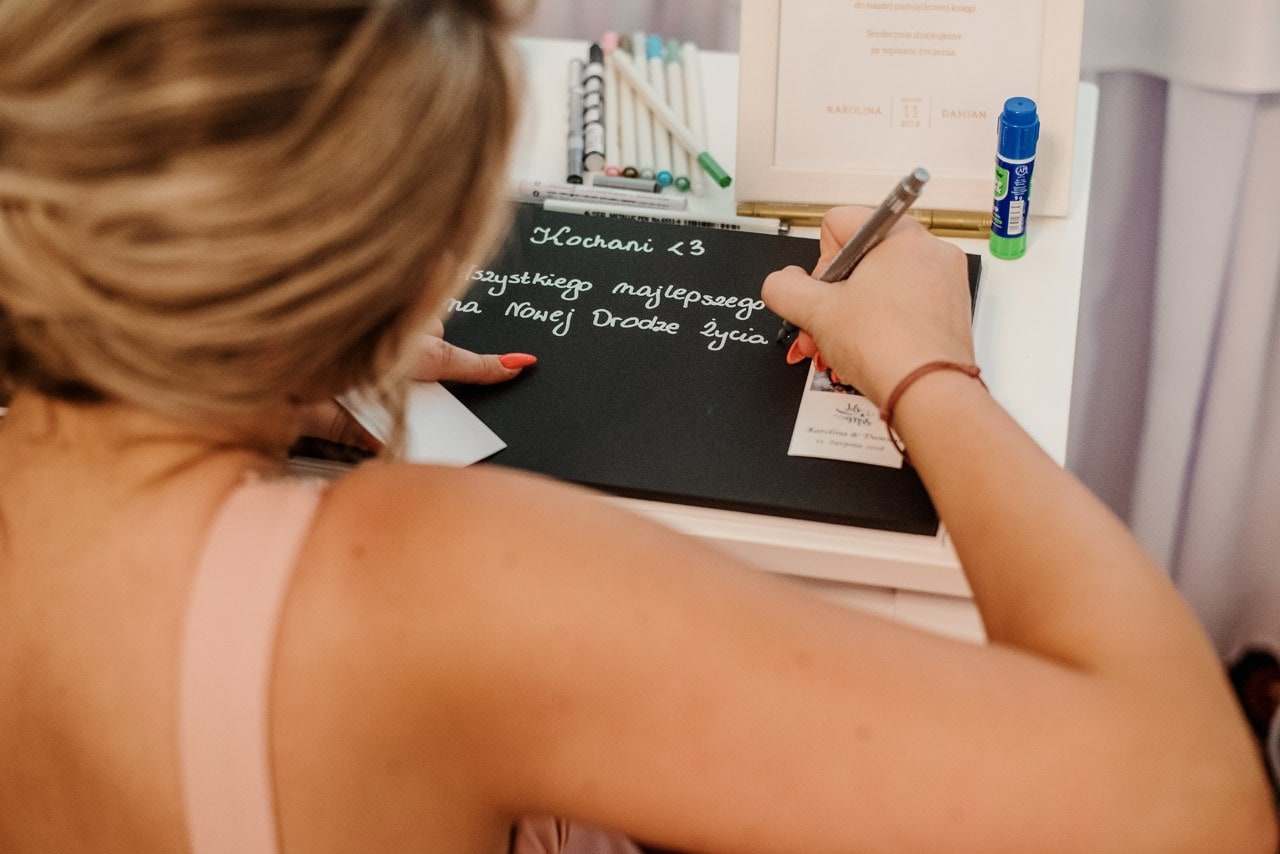 do naszej pamiątkowej księgi.
Serdecznie dziękujemy
za wpisane życzenia.
KAROLINA 11 2018 DAMIAN
Kochani <3
szystkiego najlepszego
na Nowej Drodze życia
Karolina &
11 sierpnia 2018